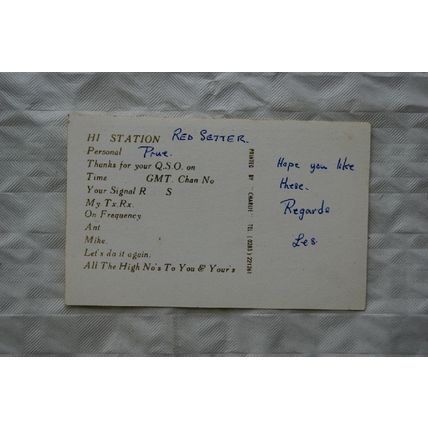 HI STATION RED SETTER.
Personal Prue.
Thanks for your Q.S.O. on
Time GMT. Chan No
Your Signal R S
My Tx Rx.
On Frequency
Ant
Mike.
Let's do it again.
All The High No's To You & Your's
PRINTED BY "CHARLIE" TEL (0283) 221261
Hope you like
these.
Regards
Les.